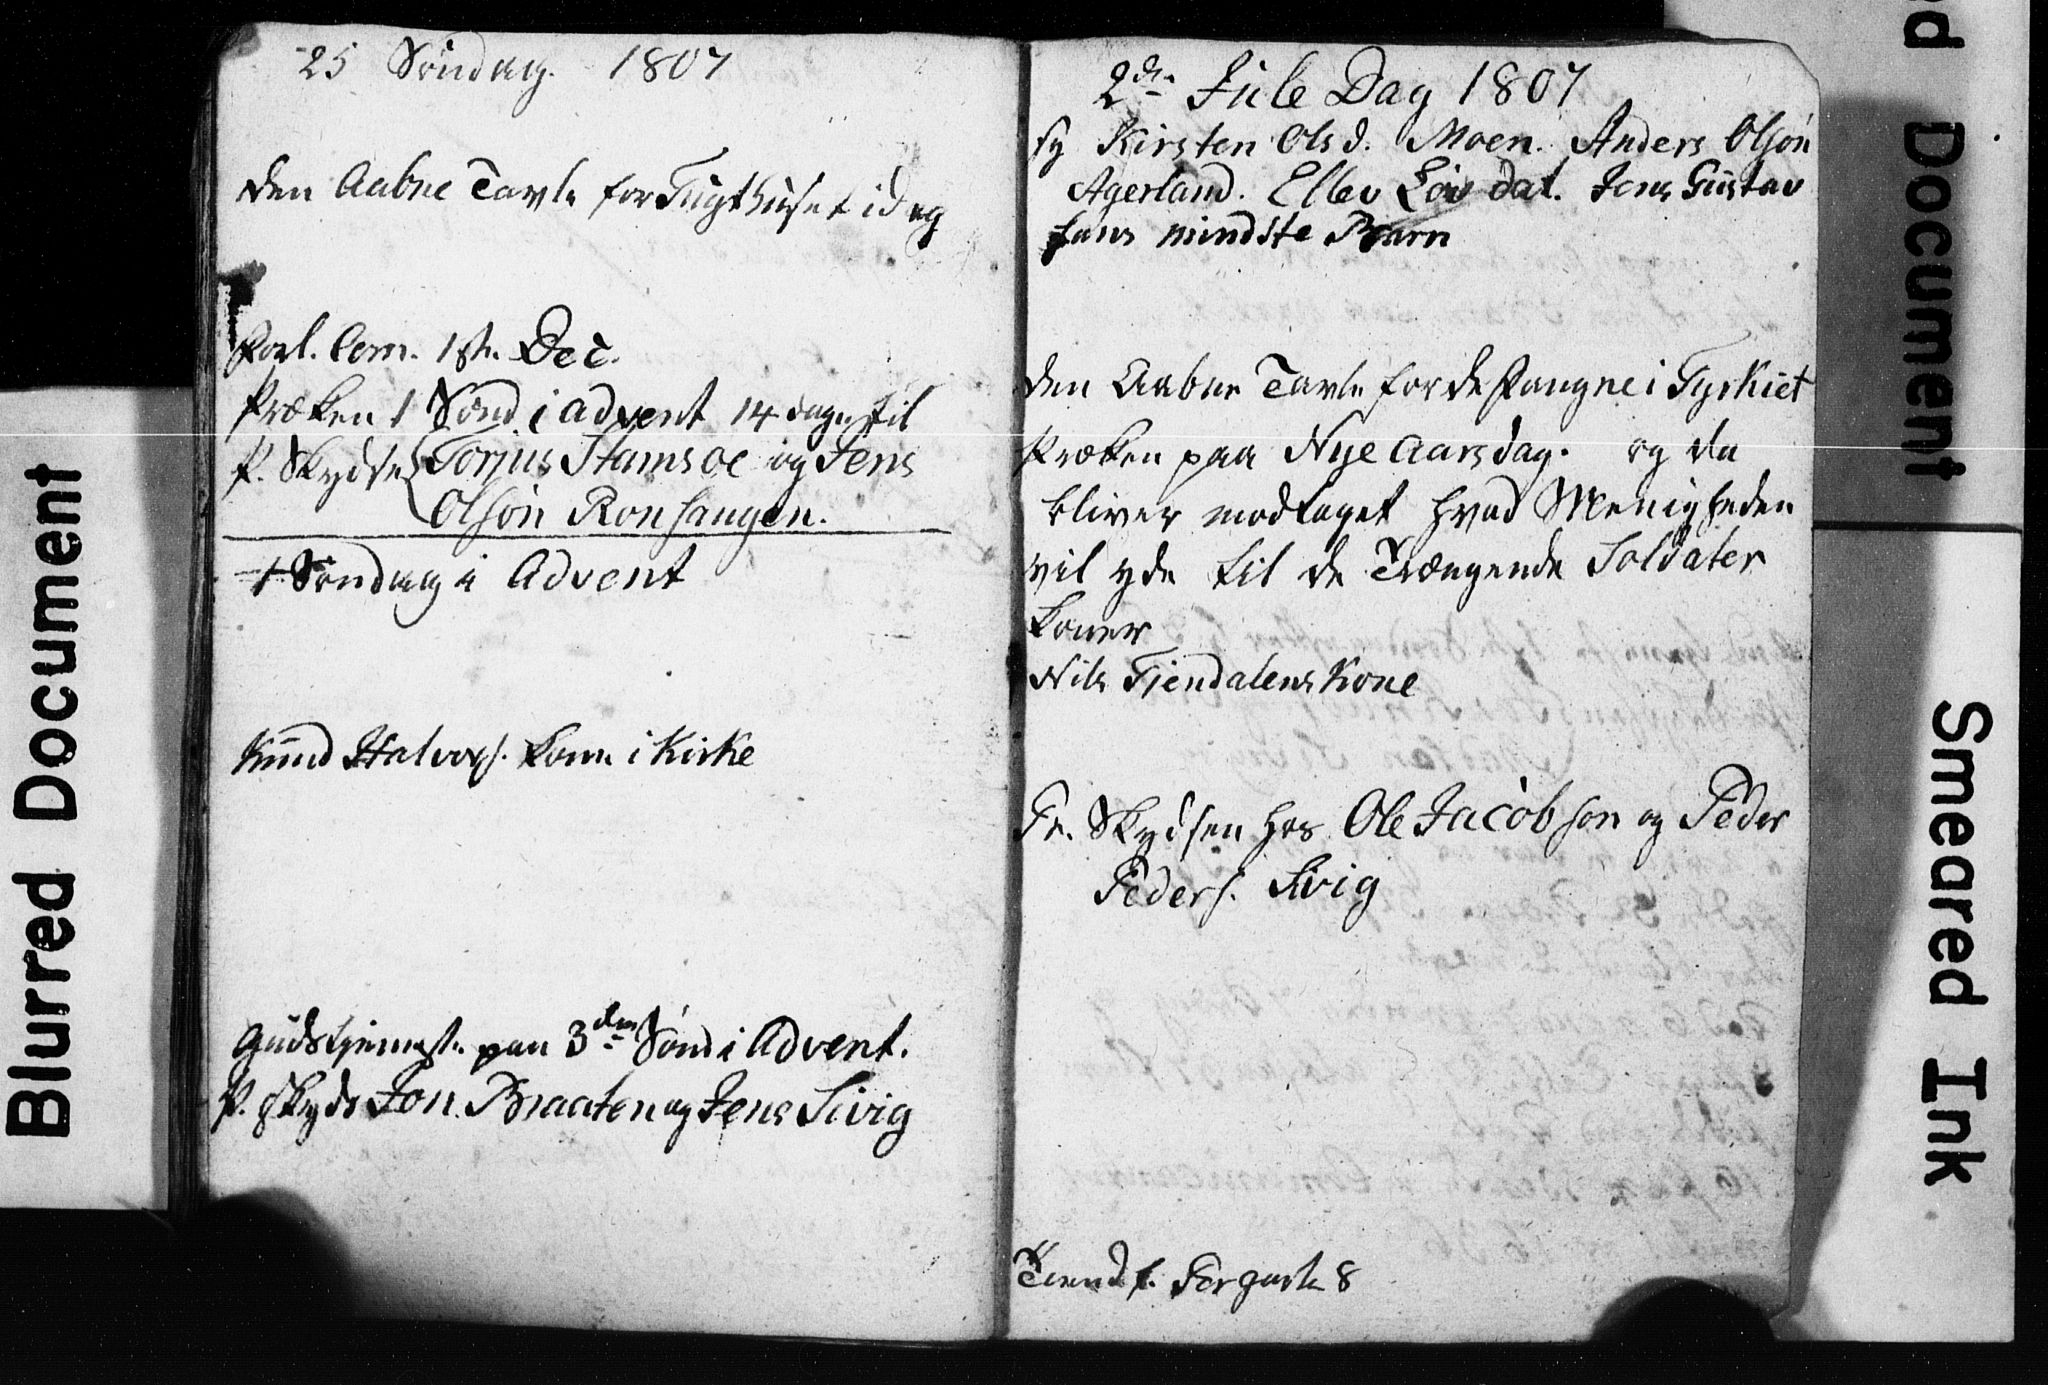 25 Søndag. 1807
den Aabne Tavle for Tugthuset idag
Parl. Com. 1ste Dec.
Præken 1 Sønd. i advent 14 dage til
P. Skydse Torjus Stamsoe og Jens
Olsøn Ronhaugen.
1 Søndag i Advent
Knud Halvors. Kone i Kirke
Gudstjenest paa 3den Sønd i Advent.
P. Skyds Jon Braaten og Jens Sivig
2den Jule Dag 1807
syg Kirsten Olsd. Moen. Anders Olsøn
Agerland. Ellev dat. Jens Gustav
hans mindste Barn
den Aabne Tavle for de Fangne i Tyrkiet
Præken paa Nye Aarsdag. og da
bliver modtaget hvad Menigheden
vil yde til de Trængende Soldater
Koner
Nils Tjendalens Kone
Pr. Skydsen hos Ole Jacobsøn og Peder
Peders. Sivig
8
Blurred Document
ed Document
Smeared Ink